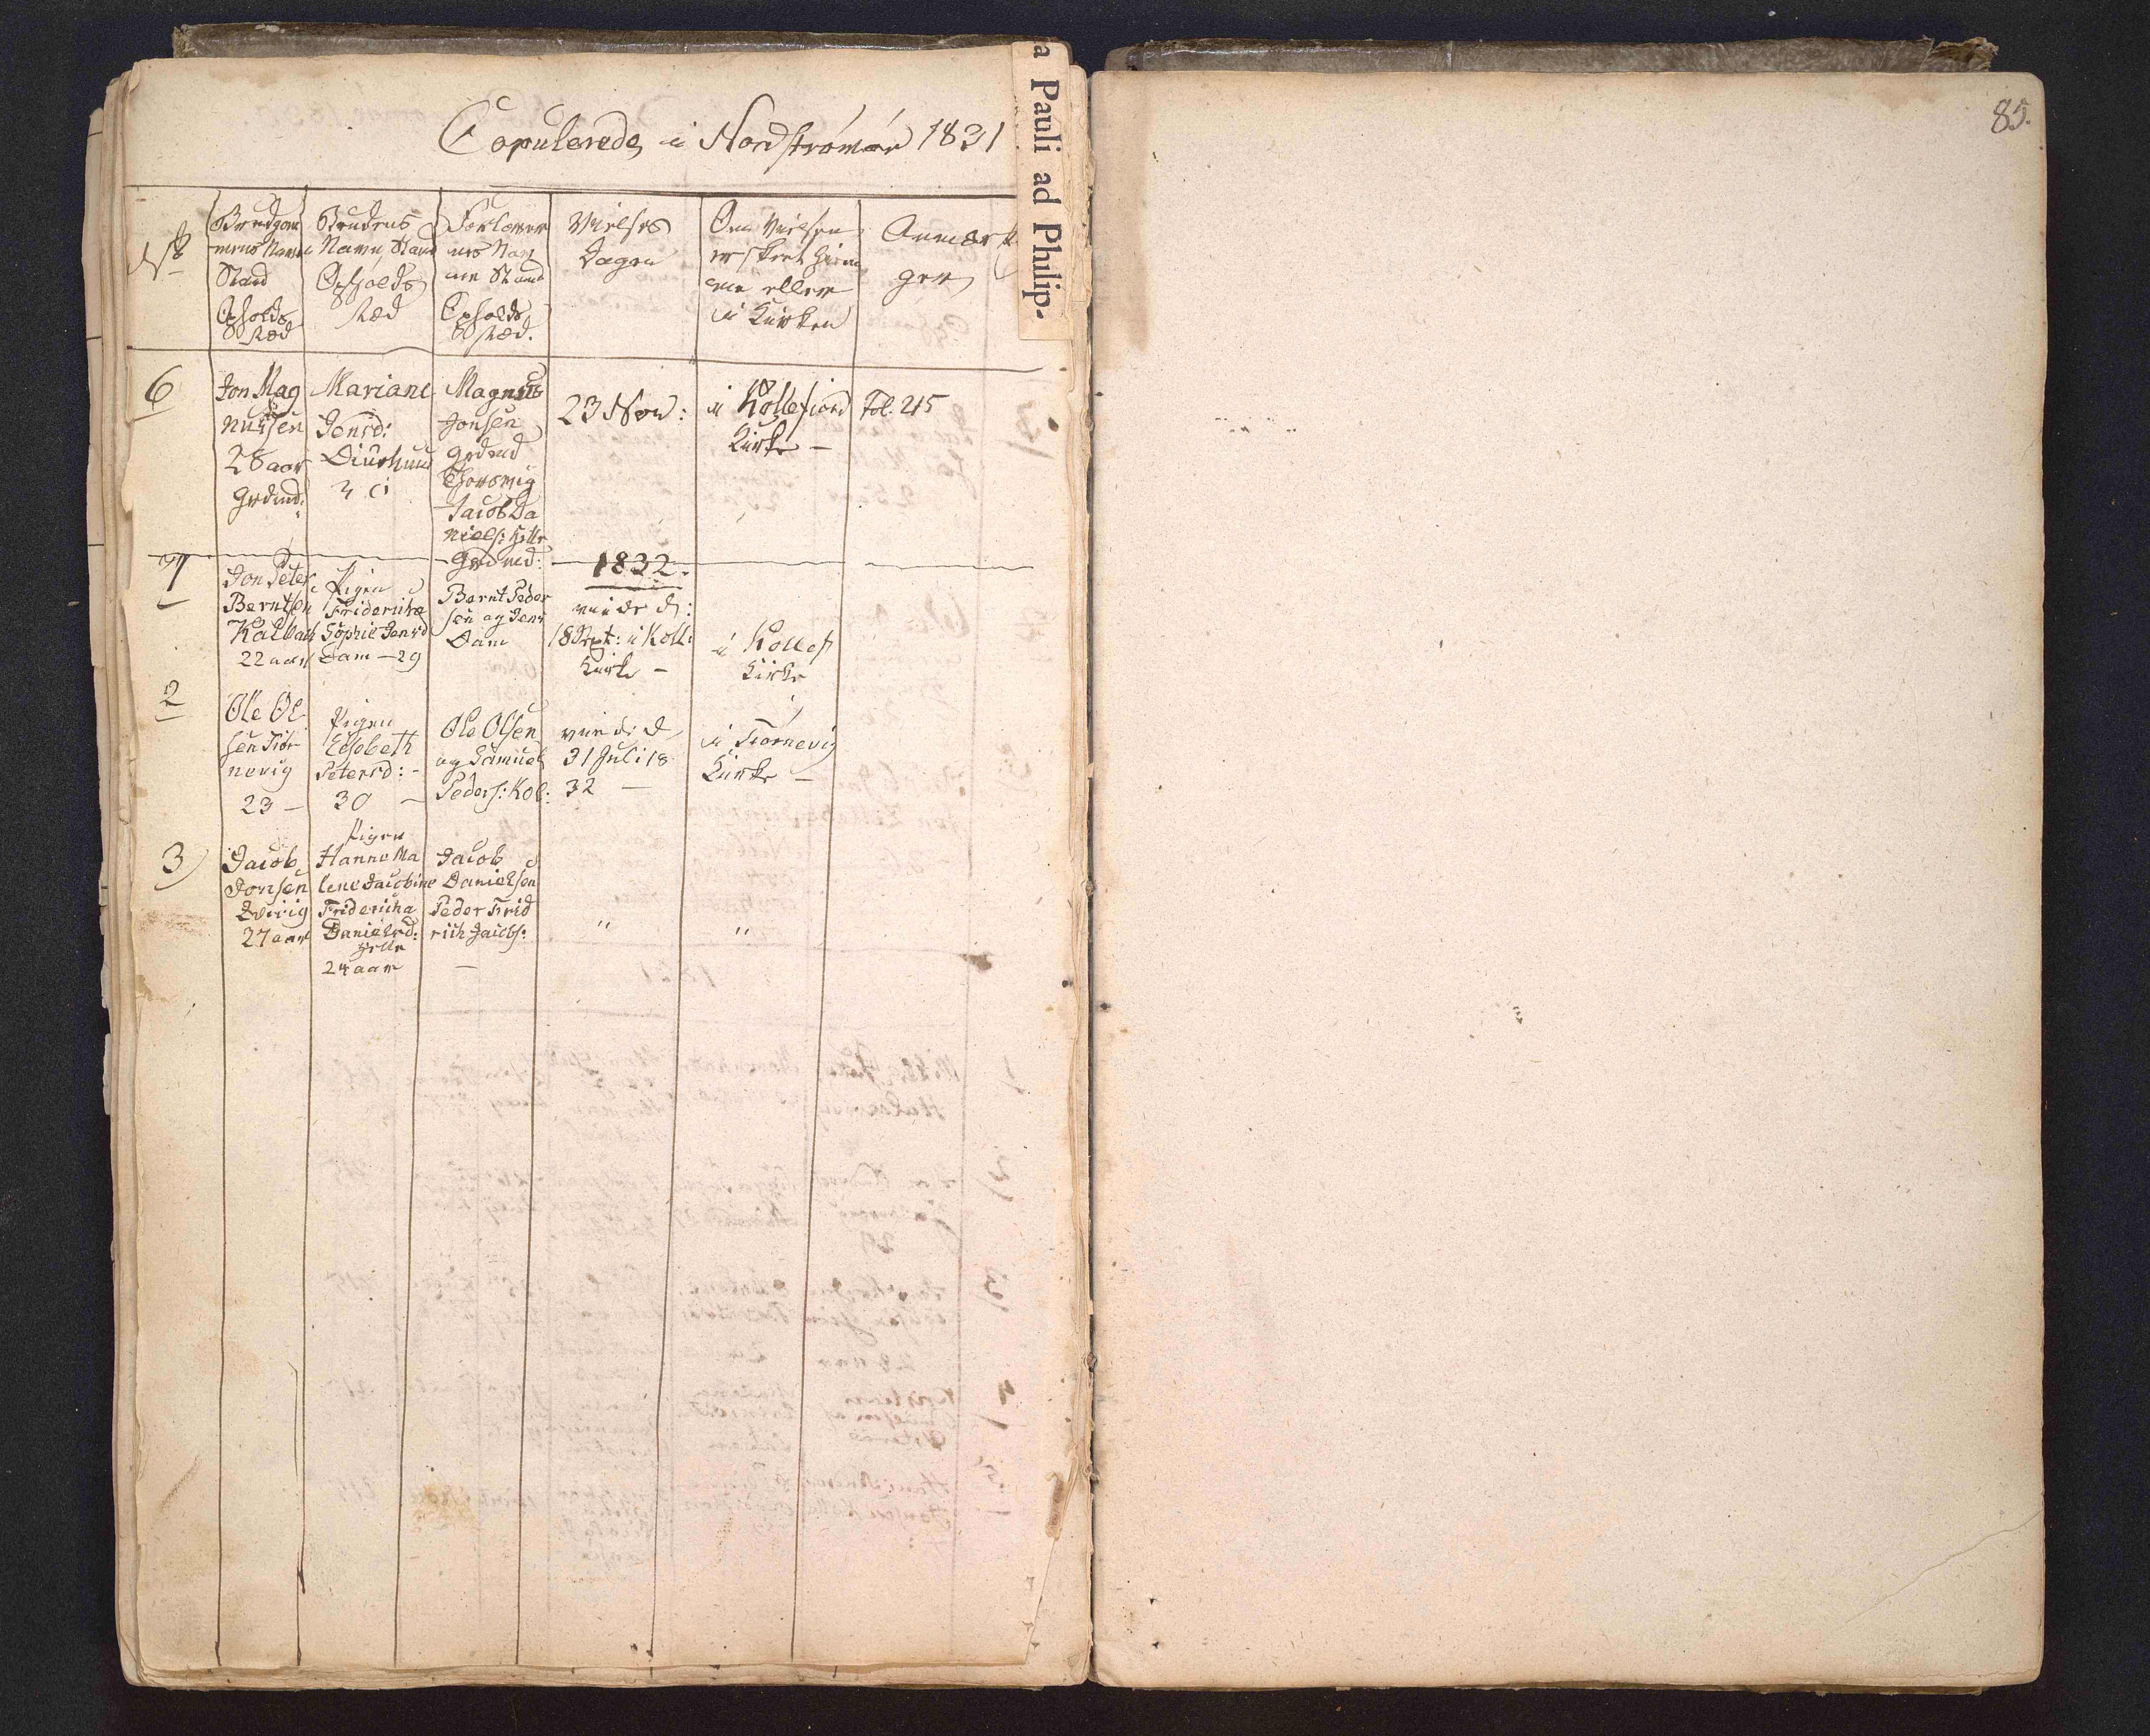 Copulerede i Nordstrømøe 1831
a Pauli ad Philip-
85.
No
Brudgom
mens Navn
Stand
Opholds
stæd
Brudens
Navn, Stand
Opholds
stæd
Forlover
nes Nav
ne Stand
Opholds
stæd.
Vielses
Dagen
Om Vielsen
er skeet hiem
me eller
i Kirken
Anmærk
ger
6
Jon Mag
nussen
28 aar
Grdmd:
Mariane
Jensd:
Diurhuus
Magnus
Jonsen
Grdmd
Thorsvig
Jacob Da
niels:
Grdmd:
23 Nov:
i Kollefiord
Kirke –
Fol. 215
1832.
Jon Peter
Berntsen
Kalbak
22 aar
Pigen
Friderica
Sophie Jensd
Dam – 29
Bernt Peder
sen og Jens
Dam
viede d:
18 Sept: i Koll:
Kirke –
i Kollef
Kirke
2
Ole Ol
sen Tiør
nevig
23 –
Pigen
Elsebeth
Petersd: –
30 –
Ole Olsen
og Samuel
Peders: Kol:
viede d
31 Juli 18
32 –
i Tiørnevig
Kirke –
3
Jacob
Jonsen
Qvivig
27 aar
Pigen
Hanne Ma
lene Jacobine
Friderica
Danielsd:
24 aar
Jacob
Danielsen
Peder Frid
rich Jacobs:
–
"
"